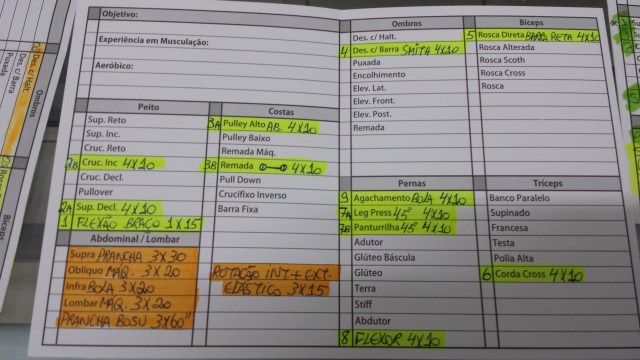 Objetivo:
Experiência em Musculação:
Aeróbico:
Peito
Sup. Reto
Sup. Inc.
Cruc. Reto
2B Cruc. Inc 4x10
Cruc. Decl.
Pullover
2A Sup. Decl. 4x10
1 FLEXÃO BRAÇO 1x15
Abdominal / Lombar
Supra PRANCHA 3x30
Oblíquo MAQ. 3x20
Infra BOLA 3x20
Lombar MAQ. 3x20
PRANCHA BOSU 3x60"
Costas
3A Pulley Alto AB. 4x10
Pulley Baixo
Remada Máq.
3B Remada 4x10
Pull Down
Crucifixo Inverso
Barra Fixa
ROTAÇÃO INT + EXT
ELÁSTICO 3x15
Ombros
Des. c/ Halt.
4 Des. c/ Barra SMITH 4x10
Puxada
Encolhimento
Elev. Lat.
Elev. Front.
Elev. Post.
Remada
Pernas
9 Agachamento BOLA 4x10
7A Leg Press 45° 4x10
7B Panturrilha 45° 4x10
Adutor
Glúteo Báscula
Glúteo
Terra
Stiff
Abdutor
8 FLEXOR 4x10
Biceps
5 Rosca Direta BARRA RETA 4x10
Rosca Alterada
Rosca Scoth
Rosca Cross
Rosca
Tríceps
Banco Paralelo
Supinado
Francesa
Testa
Polia Alta
6 Corda Cross 4x10
Ombros
Des. c/ Halt.
Des. c/ Barra
Puxada
Bíceps